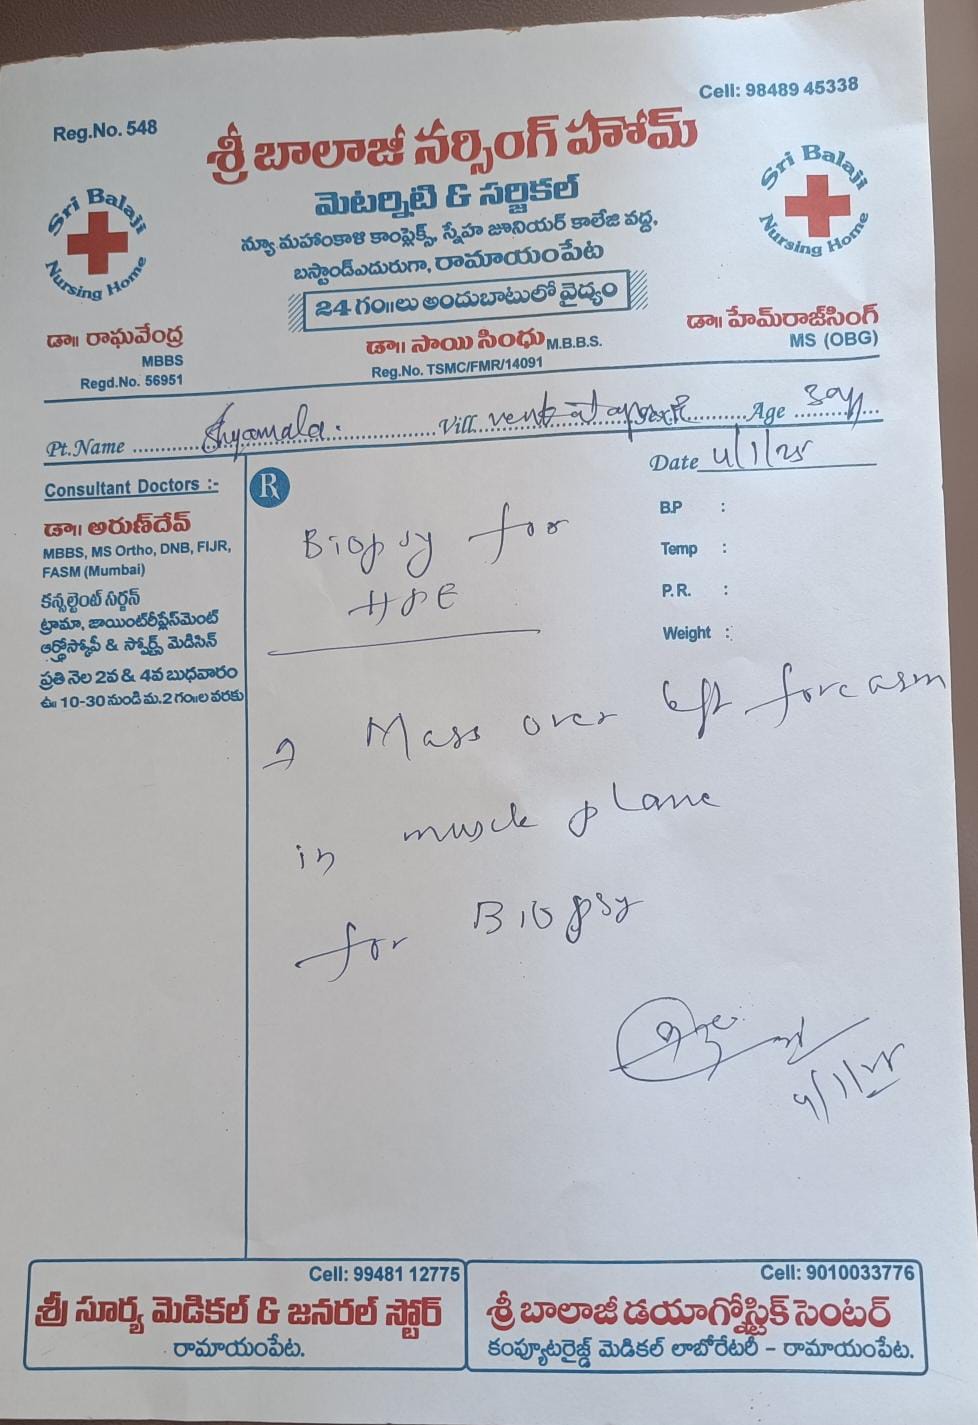 Cell: 98489 45338
Reg.No. 548
శ్రీ బాలాజీ నర్సింగ్ హోమ్
Sri Balaji Nursing Home
Sri Balaji Nursing Home
మెటర్నిటి & సర్జికల్
న్యూ మహంకాళి కాంప్లెక్స్, స్నేహ జూనియర్ కాలేజి వద్ద,
బస్టాండ్ఎదురుగా, రామాయంపేట
24 గం॥లు అందుబాటులో వైద్యం
డా॥ రాఘవేంద్ర
MBBS
Regd.No. 56951
డా॥ సాయి సింధు M.B.B.S.
Reg.No. TSMC/FMR/14091
డా॥ హేమ్‌రాజ్‌సింగ్
MS (OBG)
Pt.Name Shyamala. Vill. Age
Date
Consultant Doctors :-
డా॥ అరుణ్‌దేవ్
MBBS, MS Ortho, DNB, FIJR,
FASM (Mumbai)
కన్సల్టెంట్ సర్జన్
ట్రామా, జాయింట్‌రీప్లేస్‌మెంట్
ఆర్థ్రోస్కోపీ & స్పోర్ట్స్ మెడిసిన్
ప్రతి నెల 2వ & 4వ బుధవారం
ఉ॥ 10-30 నుండి మ.2 గం॥ల వరకు
R
B.P :
Temp :
P.R. :
Weight :
Biopsy for
HPE
Mass over left forearm
in muscle plane
for Biopsy
Cell: 99481 12775
శ్రీ సూర్య మెడికల్ & జనరల్ స్టోర్
రామాయంపేట.
Cell: 9010033776
శ్రీ బాలాజీ డయాగ్నోస్టిక్ సెంటర్
కంప్యూటరైజ్డ్ మెడికల్ లాబోరేటరీ – రామాయంపేట.